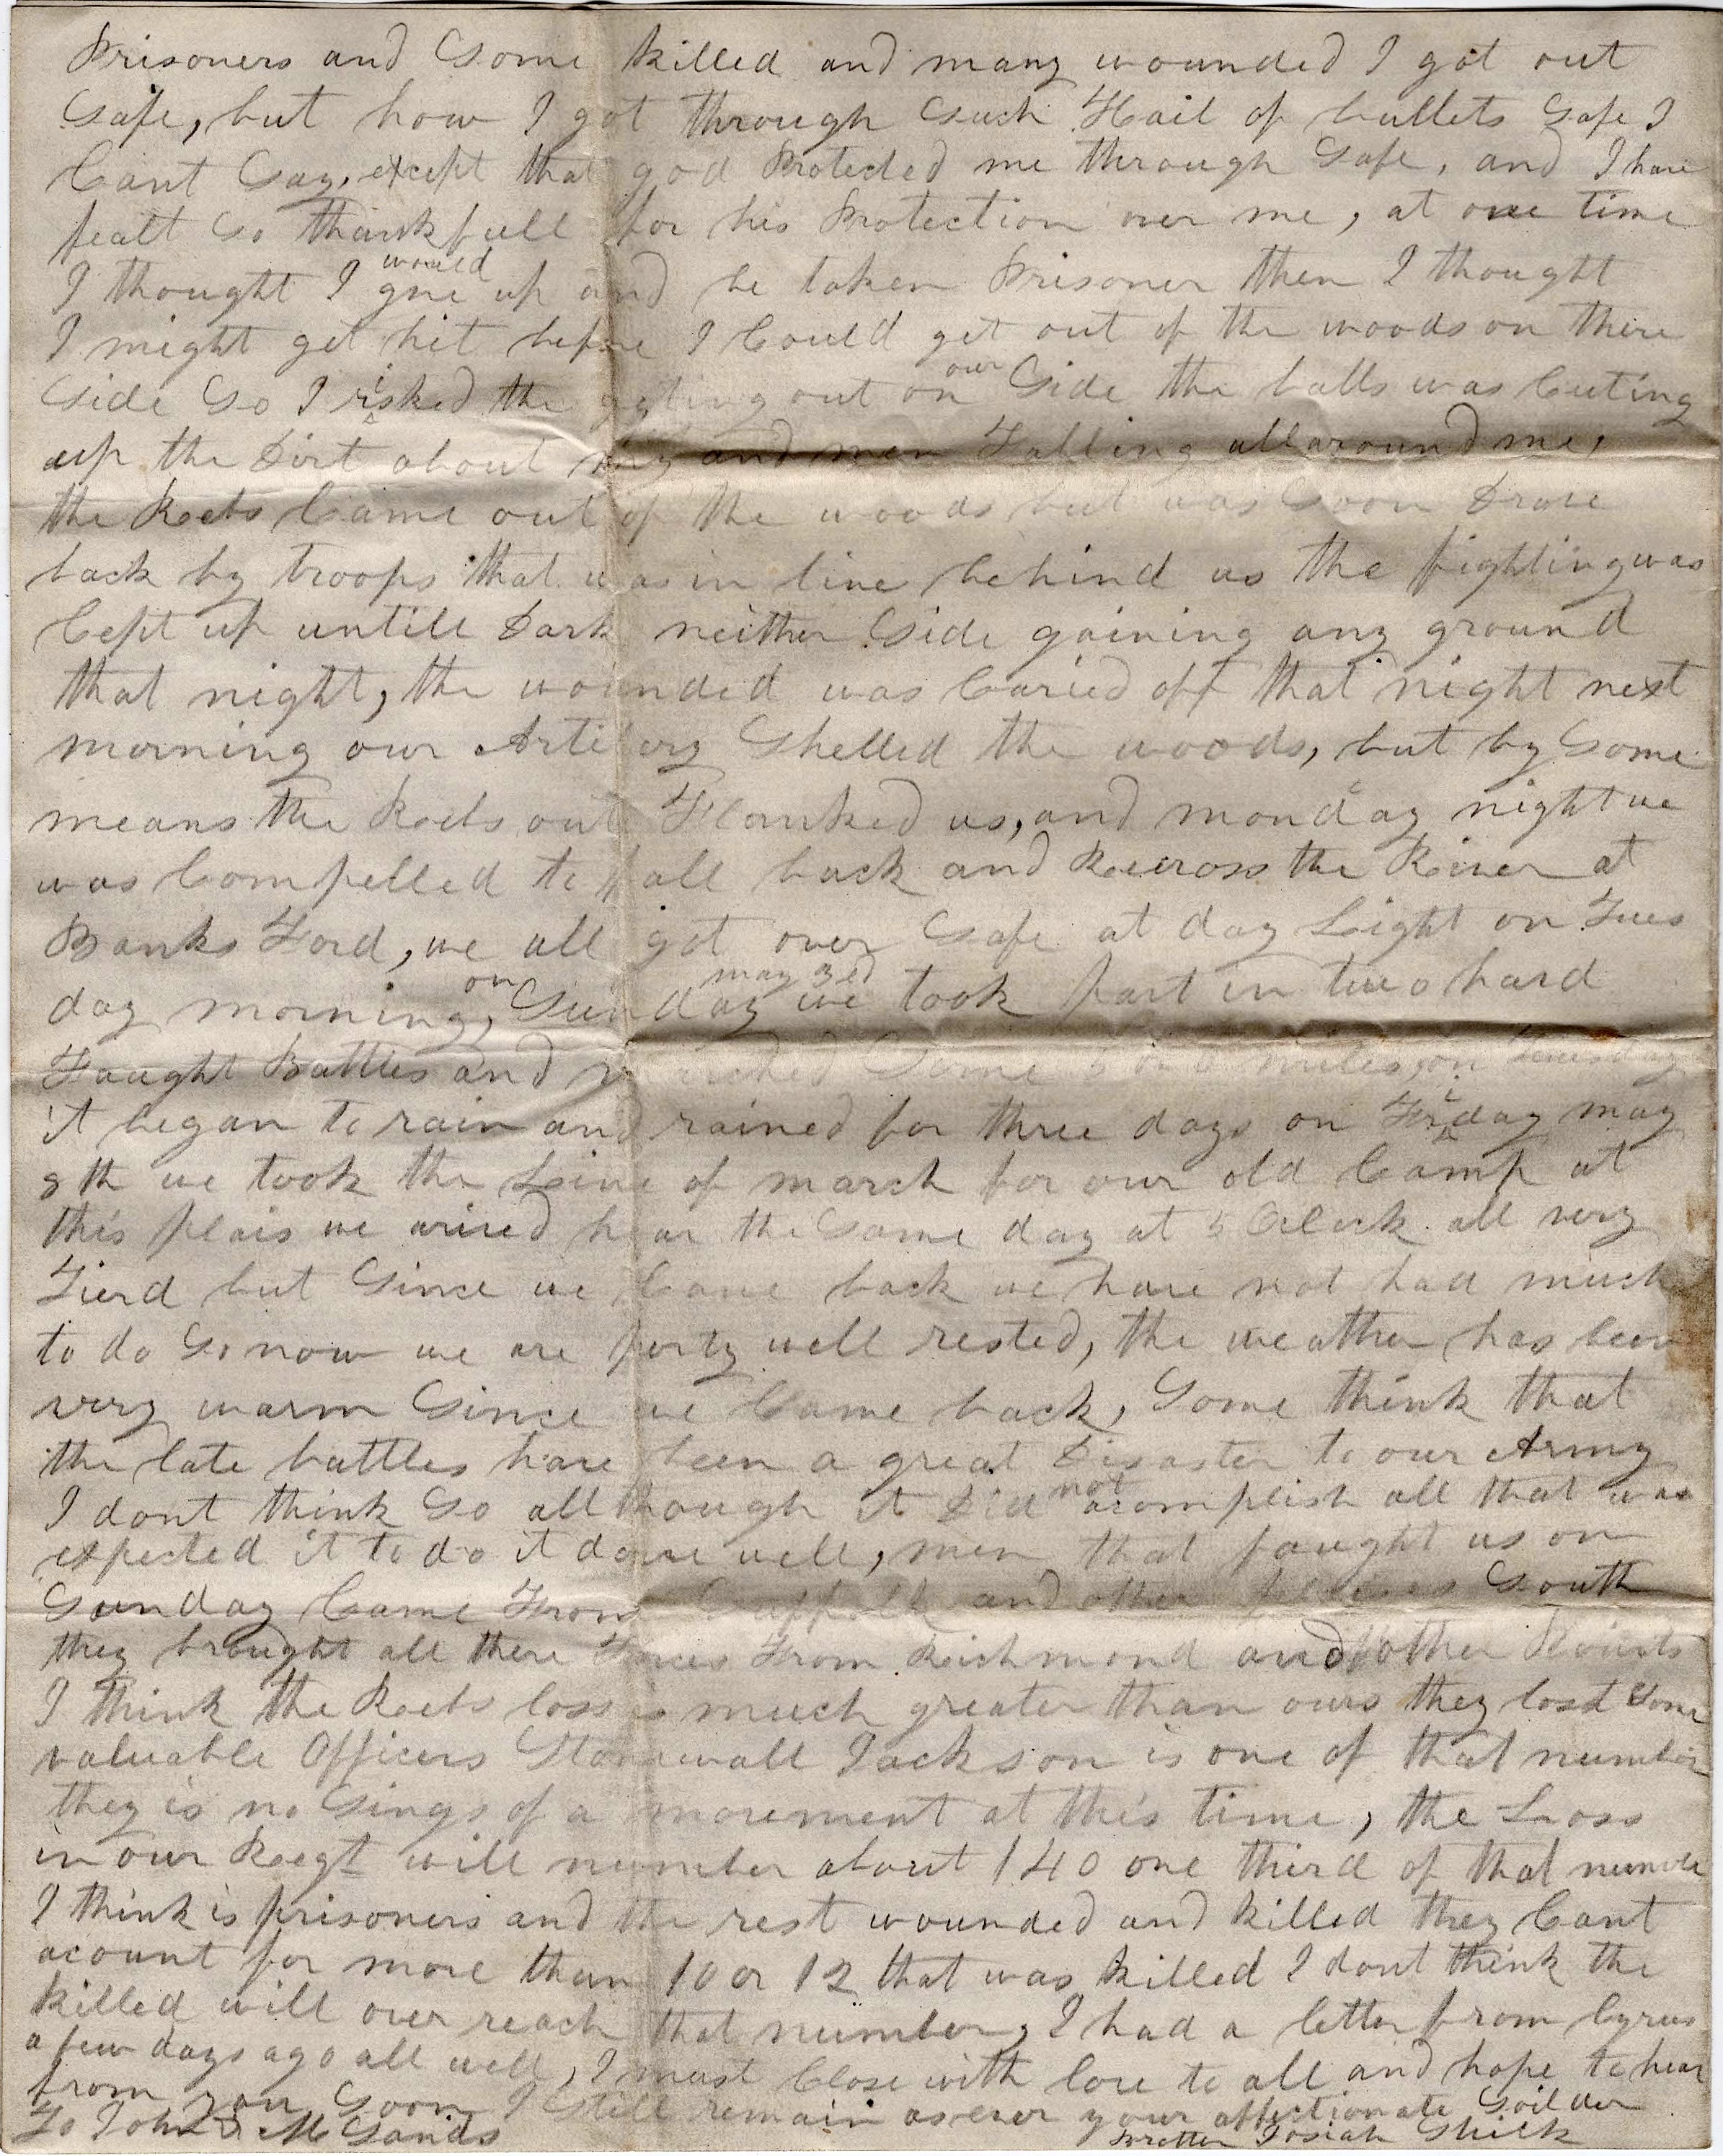 Prisoners and Some killed and many wounded I got out
Safe, but how I got through Such Hail of bullets Safe I
Cant Say, except that god Protected me through Safe, and I have
fealt So thankfull for his Protection over me, at one time
I thought I would give up and be taken Prisoner then I thought
I might get hit before I Could get out of the woods on there
Side So I risked the geting out on our Side the balls was Cuting
up the Dirt about me and men Falling all around me,
the Rebs Came out of the woods but was Soon Drove
back by troops that was in line behind us the fighting was
Cept up untill Dark neither Side gaining any ground
that night, the wounded was Caried off that night next
morning our Artilory Shelled the woods, but by Some
means the Rebs out Flanked us, and monday night we
was Compelled to fall back and Recross the River at
Banks Ford, we all got over Safe at day Light on Tues
day morning, on Sunday may 3ed we took part in two hard
Faught Battles and marched Some 5 or 6 miles, on Tuesday
it began to rain and rained for three days on Friday may
8th we took the Line of march for our old Camp at
this plais we arived hear the Same day at 5 Oclock all very
Tierd but Since we Came back we have not had much
to do So now we are perty well rested, the weather has been
very warm Since we Came back, Some think that
the late battles have been a great Disaster to our Army
I dont think So allthough it Did not acomplish all that was
expected it to do it done well, men that faught us on
Sunday Came From Suffolk and other places South
they brought all there Forces From Richmond and other Points
I think the Rebs loss is much greater than ours they lost Some
valuable Officers Stonewall Jackson is one of that number
they is no Sings of a movement at this time, the Loss
in our Regt will number about 140 one third of that number
I think is prisoners and the rest wounded and killed they Cant
acount for more than 10 or 12 that was killed I dont think the
killed will over reach that number, I had a letter from Cyrus
a few days ago all well, I must Close with love to all and hope to hear
from you Soon I Still remain as ever your affectionate Soilder
To John & M Sands Brother Josiah Shilk